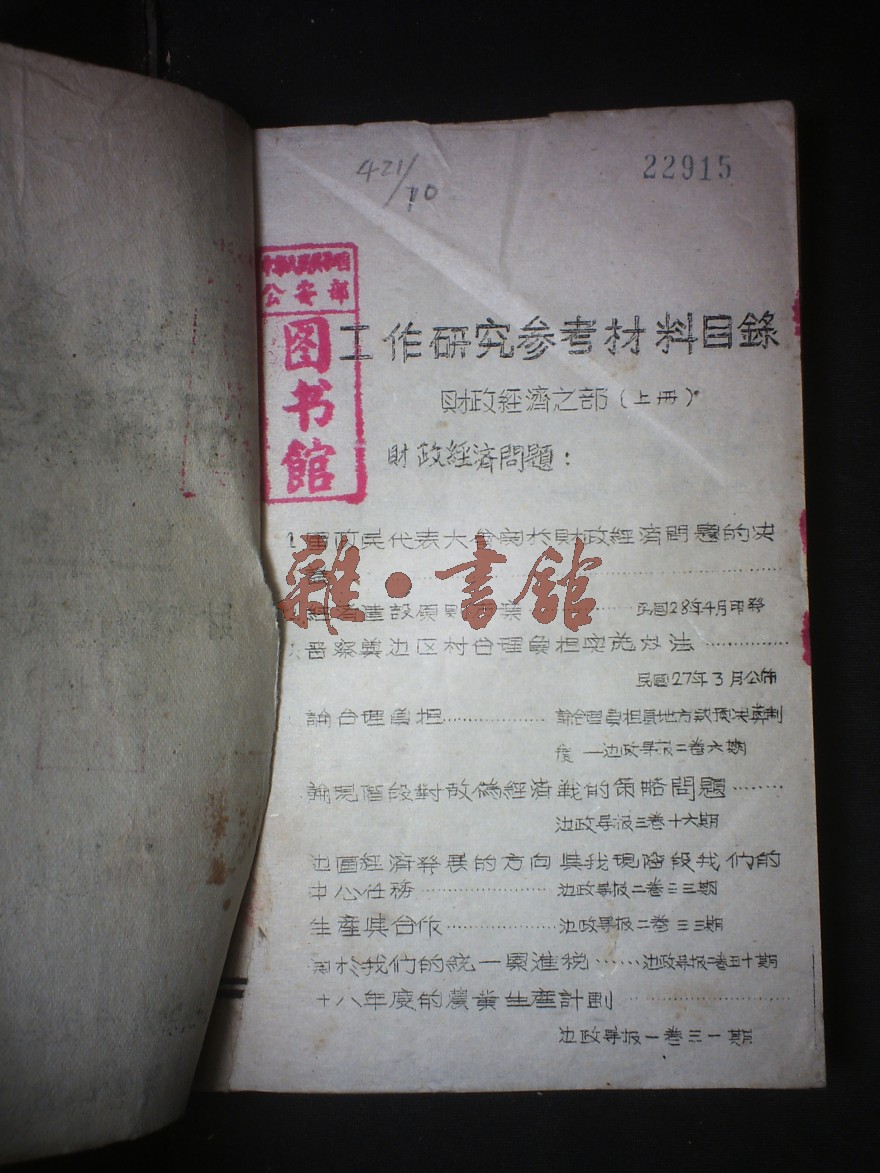 421/10
22915
公安部
图书馆
工作研究参考材料目錄
財政經濟之部(上冊)
財政經济問題:
1.軍政民代表大会関於財政經濟問題的决
雜·書館
民國28年4月
晋察冀边区村合理負担实施办法
民國27年3月公佈
論合理負担
論合理負担與地方款預决算制
度—边政導报二卷六期
論現階段對敌偽經濟战的策略問題
边政導报三卷十六期
边區經濟發展的方向與我現階段我們的
中心任務 边政導报二卷三三期
生產與合作 边政導报二卷三三期
関於我們的統一累進税
十八年度的農業生產計劃
边政導报一卷三一期